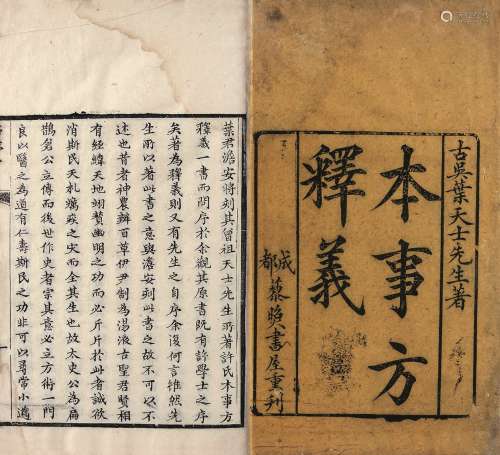 古吳葉天士先生著
本事方
釋義
成都藜照書屋重刊
葉君澹安將刻其曾祖天士先生所著許氏本事方
釋義一書而問序於余觀其原書既有許學士之序
矣著為釋義則又有先生之自序余復何言惟然先
生所以著此書之意與澹安刻此書之故不可以不
述也昔者神農辨百草伊尹制為湯液古聖君賢相
有經緯天地翊贊幽明之功而必斤斤於此者誠欲
消斯民夭札癘疫之灾而全其生也故太史公為扁
鵲倉公立傳而後世作史者宗其意必立方術一門
良以醫之為道有仁壽斯民之功非可以尋常小道